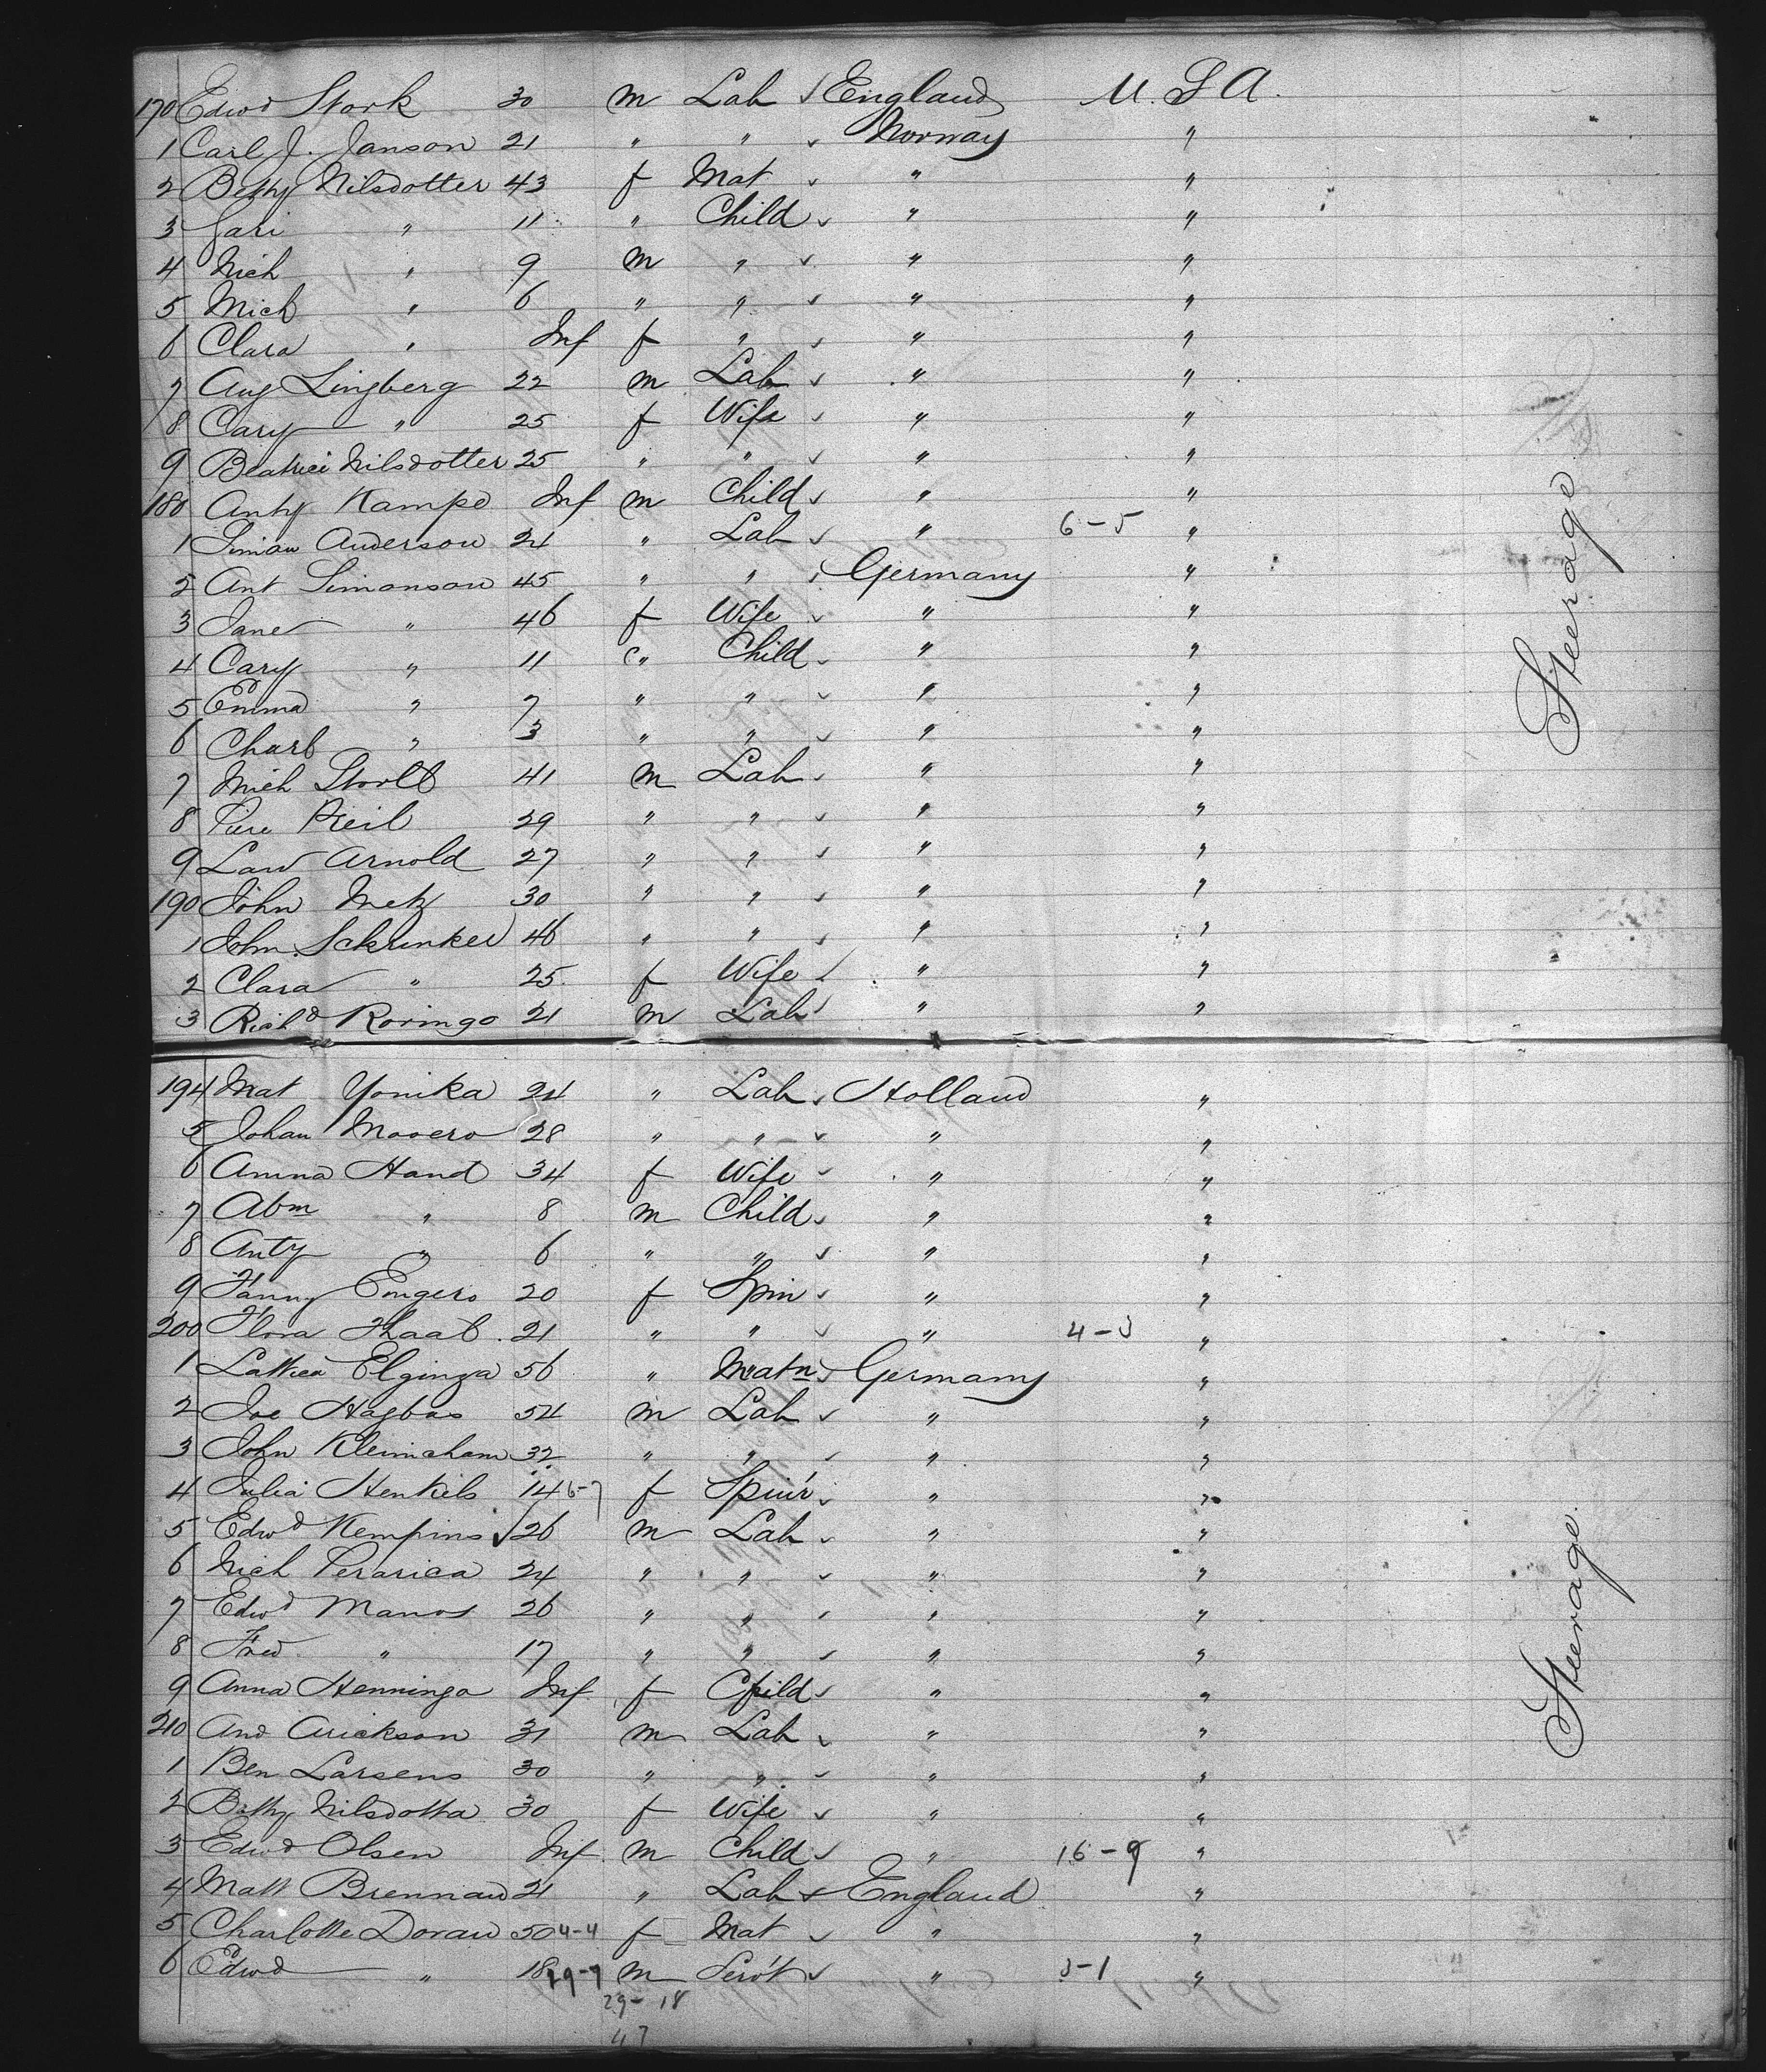 170 Edwd Stork 30 m Lab ✓ England U. S A.
1 Carl J. Janson 21 " " ✓ Norway "
2 Bethy Nilsdotter 43 f Mat ✓ " "
3 Gari " 11 " Child ✓ " "
4 Nich " 9 m " ✓ " "
5 Mich " 6 " " ✓ " "
6 Clara " Inf f " ✓ " "
7 Aug Lingberg 22 m Lab ✓ " "
8 Cary " 25 f Wife ✓ " "
9 Beatrice Nilsdotter 25 " " ✓ " "
180 Anty Kampe Inf m Child ✓ " "
1 Simon Anderson 24 " Lab ✓ " 6-5 "
2 Ant Simonson 45 " " ✓ Germany "
3 Jane " 46 f Wife ✓ " "
4 Cary " 11 " Child ✓ " "
5 Emma " 7 " " ✓ " "
6 Charl " 3 " " ✓ " "
7 Mich Stoll 41 m Lab ✓ " "
8 29 " " ✓ " "
9 Law Arnold 27 " " ✓ " "
190 John Metz 30 " " ✓ " "
1 John Schrinkel 46 " " ✓ " "
2 Clara " 25 f Wife ✓ " "
3 Richd Roringo 21 m Lab ✓ " "
Steerage
194 Mat Yonika 24 " Lab ✓ Holland "
5 Johan 28 " " ✓ " "
6 Amna Hand 34 f Wife ✓ " "
7 Abm " 8 m Child ✓ " "
8 Anty " 6 " " ✓ " "
9 Fanny Engers 20 f Spin ✓ " "
200 Flora 21 " " ✓ " 4-3 "
1 Elginga 56 " Matn ✓ Germany "
2 Joe Hagbas 54 m Lab ✓ " "
3 John 32 " " ✓ " "
4 Julia Henkels 14 6-7 f Spin'r ✓ " "
5 Edwd Kempins ✓ 26 m Lab ✓ " "
6 Nich Perarica 24 " " ✓ " "
7 Edwd Manos 26 " " ✓ " "
8 Fred " 17 " " ✓ " "
9 Anna Henninga Inf f Child ✓ " "
210 And Arickson 31 m Lab ✓ " "
1 Ben Larsens 30 " " ✓ " "
2 Bethy Nilsdotta 30 f Wife ✓ " "
3 Edwd Olsen Inf m Child ✓ " 16-9 "
4 Matt Brennan 21 " Lab ✓ England "
5 Charlotte Doran 50 4-4 f Mat ✓ " "
6 Edwd " 18 29-7 m Serv't ✓ " 3-1 "
29-18
47
Steerage